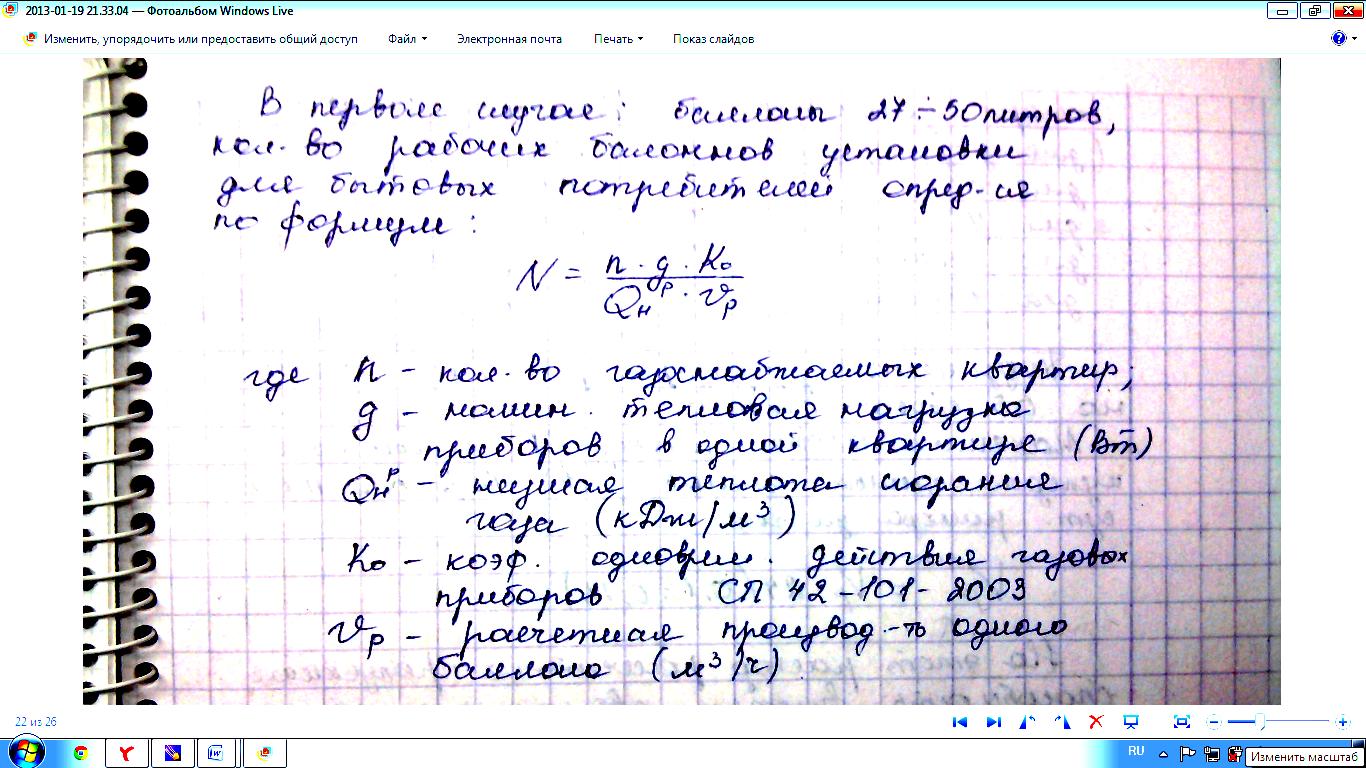 2013-01-19 21.33.04 — Фотоальбом Windows Live
Изменить, упорядочить или предоставить общий доступ Файл Электронная почта Печать Показ слайдов
В первом случае: баллоны 27÷50 литров,
кол-во рабочих балоннов установки
для бытовых потребителей опред-ся
по формуле:
N = n · g · K₀ / Qнᵖ · Vр
где n – кол-во газоснабжаемых квартир;
g – номин. тепловая нагрузка
приборов в одной квартире (Вт)
Qнᵖ – низшая теплота сгорания
газа (кДж/м³)
K₀ – коэф. одноврем. действия газовых
приборов СП 42-101-2003
Vр – расчетная производ.-ть одного
баллона (м³/ч)
22 из 26
RU
Изменить масштаб